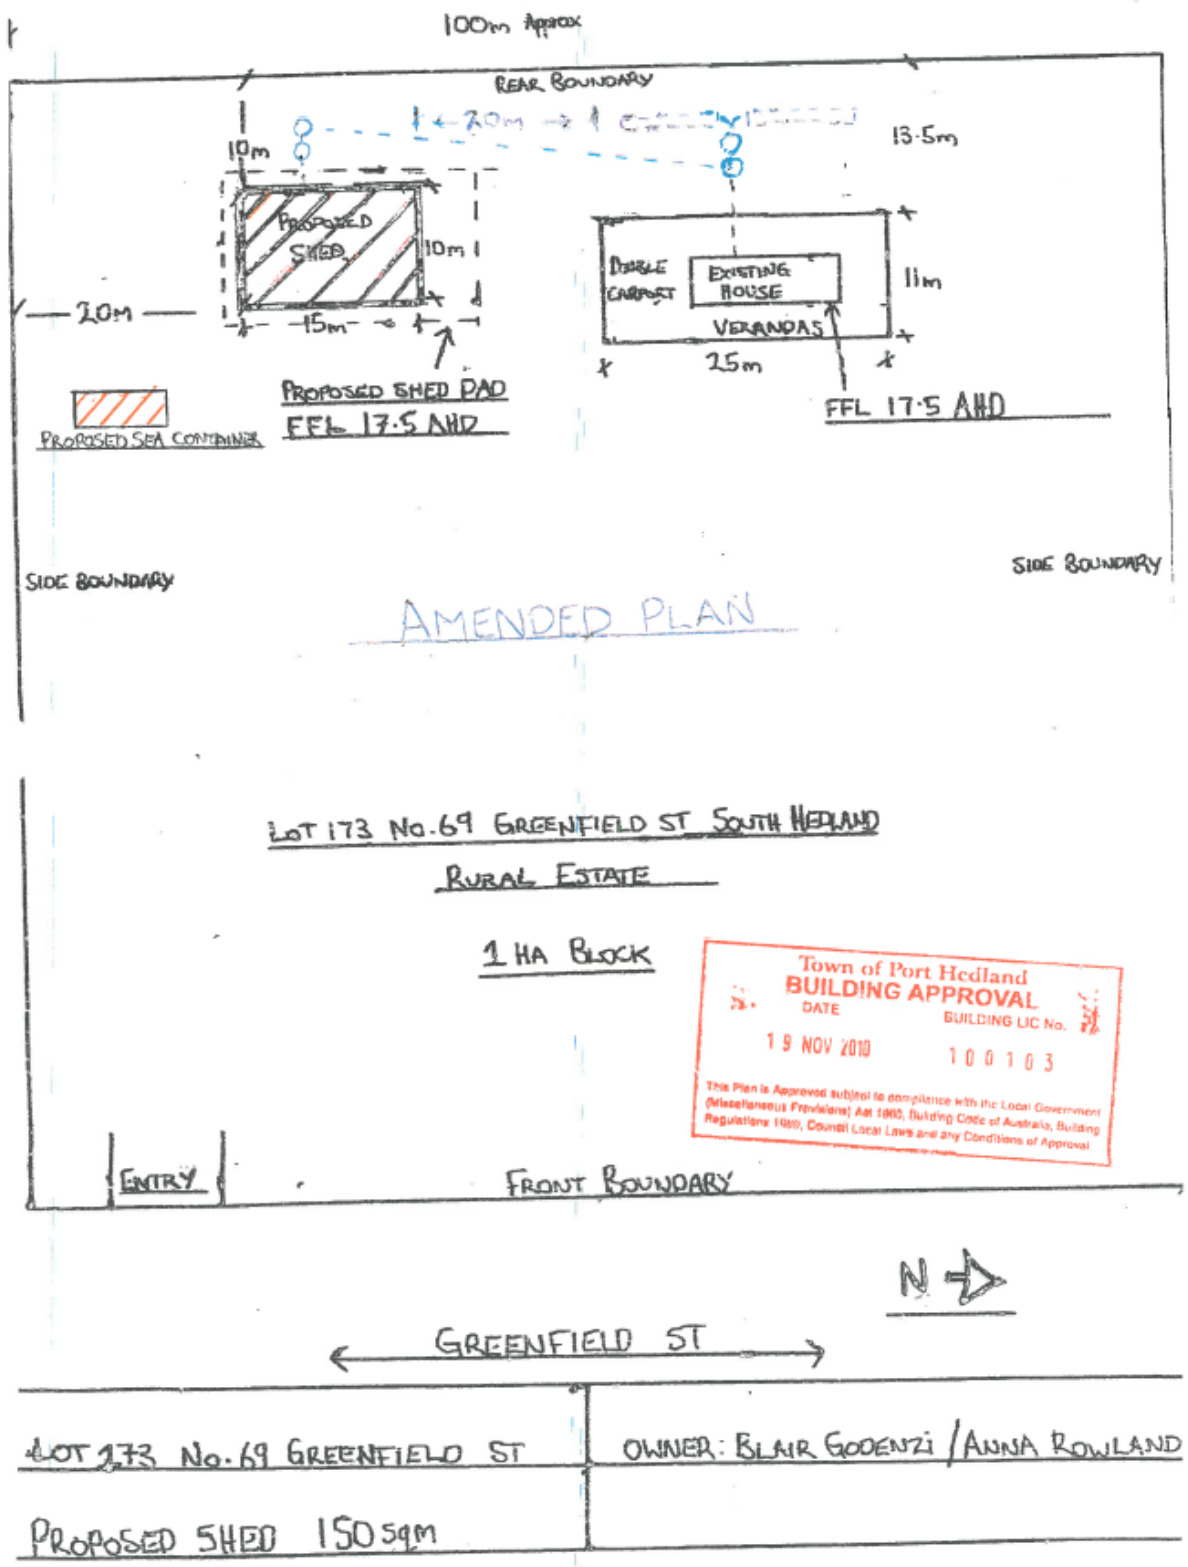 100m Approx
REAR BOUNDARY
20m
10m
13.5m
PROPOSED
SHED
10m
DOUBLE
CARPORT
EXISTING
HOUSE
VERANDAS
11m
20M
15m
25m
PROPOSED SHED PAD
FFL 17.5 AHD
FFL 17.5 AHD
PROPOSED SEA CONTAINER
SIDE BOUNDARY
SIDE BOUNDARY
AMENDED PLAN
LOT 173 No.69 GREENFIELD ST SOUTH HEDLAND
RURAL ESTATE
1 HA BLOCK
Town of Port Hedland
BUILDING APPROVAL
DATE
BUILDING LIC No.
19 NOV 2010
100103
This Plan is Approved subject to compliance with the Local Government
(Miscellaneous Provisions) Act 1960, Building Code of Australia, Building
Regulations 1989, Council Local Laws and any Conditions of Approval
ENTRY
FRONT BOUNDARY
N
GREENFIELD ST
LOT 173 No.69 GREENFIELD ST
OWNER: BLAIR GODENZI / ANNA ROWLAND
PROPOSED SHED 150sqm